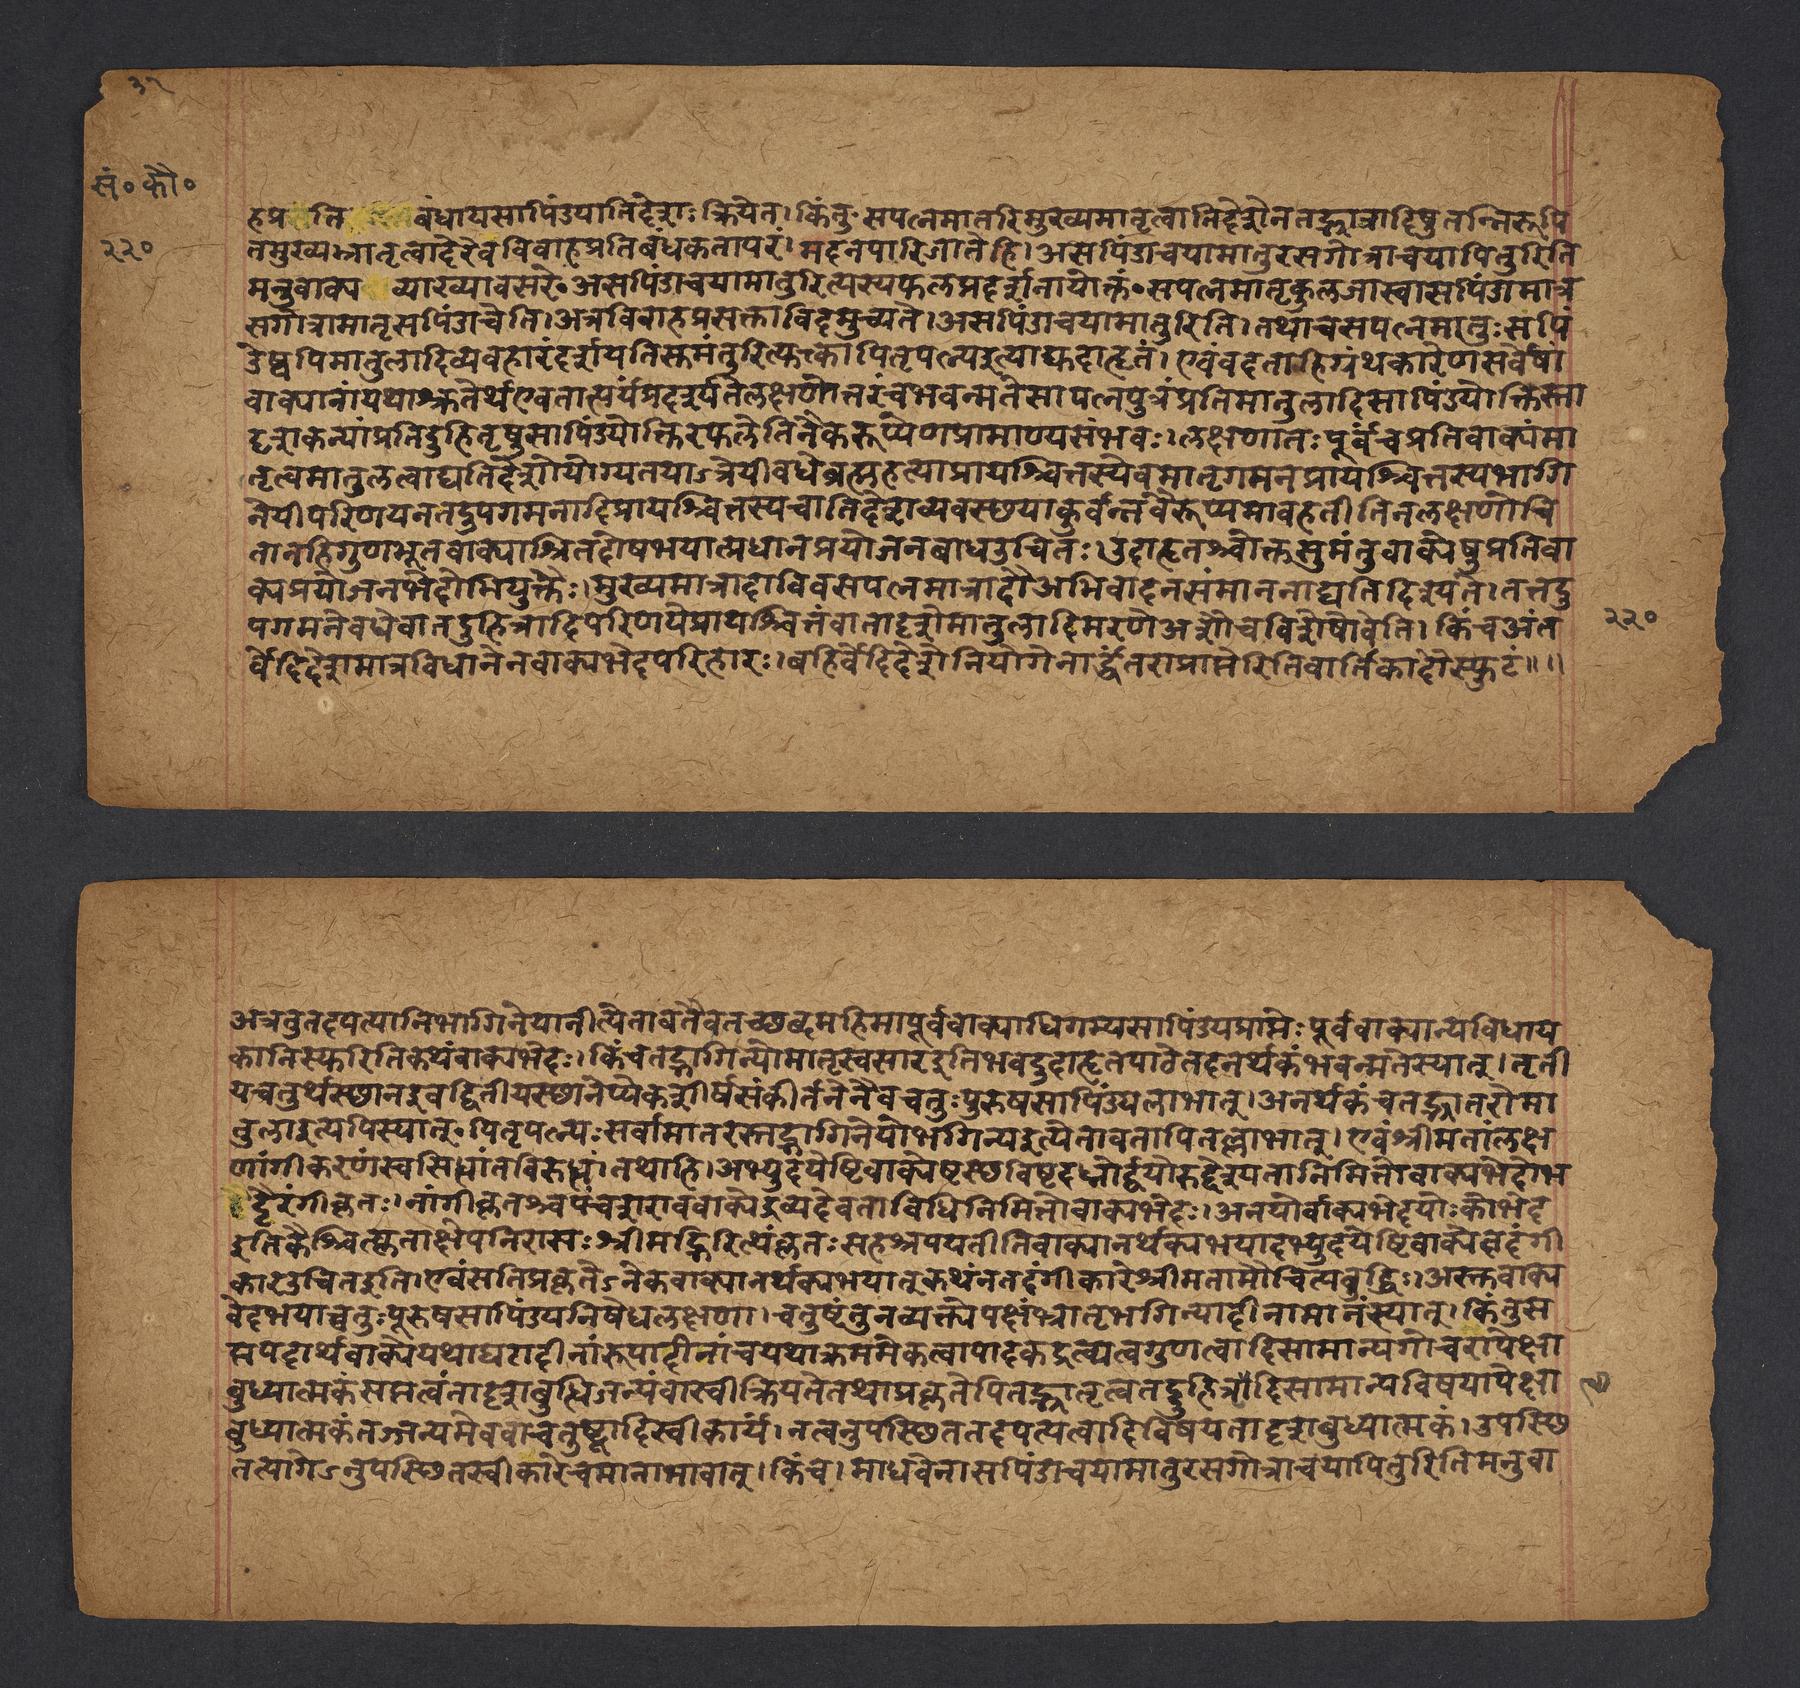 ३२
सं॰ कौ॰
२२०
हप्र ति बंधायसापिंड्यातिदेशः क्रियेत। किंतु सपत्नमातरिमुख्यमातृत्वातिदेशेनतद्भ्रात्रादिषुतन्निरूपि
तमुख्यभ्रातृत्वादेरेवविवाहप्रतिबंधकतापरं। मदनपारिजातेहि। असपिंडाचयामातुरसगोत्राचयापितुरिति
मनुवाक्य व्याख्यावसरे॰असपिंडाचयामातुरित्यस्यफलप्रदर्शनायोक्तं॰सपत्नमातृकुलजास्वासपिंडामात्र
सगोत्रामातृसपिंडाचेति। अत्रविवाहप्रसक्ताविदमुच्यते। असपिंडाचयामातुरिति। तथाचसपत्नमातुःसपिं
डेष्वपिमातुलादिव्यवहारंदर्शयतिस्तमंतुरित्युत्का पितृपत्न्यइत्याद्युदाहृतं। एवंवदताहिग्रंथकारेणसर्वेषां
वाक्यानांयथाश्रुतेर्थएवतात्पर्यंप्रदर्श्यतेलक्षणोत्तरंचभवन्मतेसापत्नपुत्रंप्रतिमातुलादिसापिंड्योक्तिस्ता
दृशकन्यांप्रतिदुहितृषुसापिंड्योक्तिरफलेतिनैकरूप्येणप्रामाण्यसंभवः। लक्षणातःपूर्वंचप्रतिवाक्यंमा
तृत्वमातुलत्वाद्यतिदेशोयोग्यतयाऽत्रेयीवधेब्रह्महत्याप्रायश्चित्तस्येवमातृगमनप्रायश्चित्तस्यभागि
नेयीपरिणयनतदुपगमनादिप्रायश्चित्तस्यचातिदेशव्यवस्छयाकुर्वन्नवैरूप्यमावहतीतिनलक्षणोचि
तानहिगुणभूतवाक्याश्रितदोषभयात्प्रधानप्रयोजनबाधउचितः। उदाहृतश्चोक्तसुमंतुवाक्येषुप्रतिवा
क्यप्रयोजनभेदोभियुक्तैः। मुख्यमात्रादाविवसपत्नमात्रादौअभिवादनसंमाननाद्यतिदिश्यते। तत्तदु
पगमनेवधेवातदुहित्रादिपरिणयेप्रायश्चित्तंवातादृशेमातुलादिमरणेअशौचविशेषोवेति। किंचअंत
र्वेदिदेशमात्रविधानेनवाक्यभेदपरिहारः। बहिर्वेदिदेशेनियोगेनार्द्धांतराप्राप्तेरितिवार्तिकादौस्फुटं॥॥
२२०
अत्रतुतदपत्यानिभागिनेयानीत्येतावतैवतच्छब्दमहिमापूर्ववाक्याधिगम्यसापिंड्यप्राप्तेःपूर्ववाक्यान्यविधाय
कानिस्फुरितिकथंवाक्यभेदः। किंचतद्भागिन्योमातृस्वसारइतिभवदुदाहृतपाठेतदनर्थकंभवन्मतेस्यात्। तृती
यचतुर्थस्छानइवद्वितीयस्छानेप्येकशीर्षसंकीर्तनेनैवचतुःपुरुषसापिंड्यलाभात्। अनर्थकंचतद्भ्रातरोमा
तुलाइत्यपिस्यात्॰पितृपत्न्यःसर्वामातरस्तद्भागिनेयोभगिन्यइत्येतावतापितल्लाभात्। एवंश्रीमतांलक्ष
णांगीकरणंस्वसिद्धांतविरुद्धं। तथाहि। अभ्युदयेष्टिवाक्येष्टस्छविष्टदध्नोर्द्वयोरुद्देश्यतानिमित्तोवाक्यभेदोभ
द्दैरंगीकृतः। नांगीकृतश्चपंचशराववाक्येद्रव्यदेवताविधिनिमित्तोवाक्यभेदः। अनयोर्वाक्यभेदयोःकोभेद
इतिकैश्चित्कृताक्षेपनिरासःश्रीमद्भिरित्थंकृतःसहश्रपयतीतिवाक्यानर्थक्यभयादभ्युदयेष्टिवाक्येत्वेदंगी
कारउचितइति। एवंसतिप्रकृतेऽनेकवाक्यानर्थक्यभयात्कथंनतदंगीकारेश्रीमतामौचित्यबुद्धिः। अस्तुवाक्य
वेदभयाच्चतुःपूरुषसापिंड्यनिषेधलक्षणा। चतुष्टंतुनव्यक्त्यपेक्षंभ्रातृभगिन्यादीनामानंस्यात्। किंतुस
प्तपदार्थवाक्येयथाघटादीनांरूपादीनांचयथाक्रममेकत्वापादकद्रव्यत्वगुणत्वादिसामान्यगोचरापेक्षा
बुध्यात्मकंसप्तत्वंनादृशबुधिजन्यंवास्वीक्रियतेतथाप्रकृतेपितद्भ्रातृत्वतद्दुहित्रादिसामान्यविषयापेक्षा
बुध्यात्मकंतज्जन्यमेववाचतुष्ट्वादिस्वीकार्यं। नत्वनुपस्छिततदपत्यत्वादिविषयतादृशबुध्यात्मकं। उपस्छि
तत्यागेऽनुपस्छितस्वीकारेचमानाभावात्। किंच। माधवेनासपिंडाचयामातुरसगोत्राचयापितुरितिमनुवा